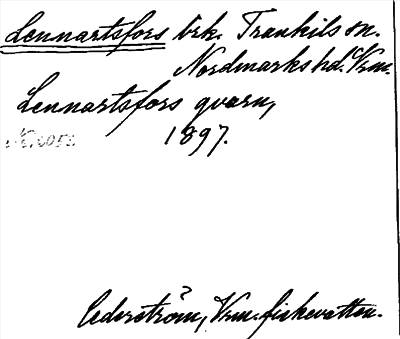 Lennartsfors brk. Trankils sn.
Nordmarks hd. Vrm.
Lennartsfors qvarn,
1897.
Cederström, Vrm. fiskevatten.